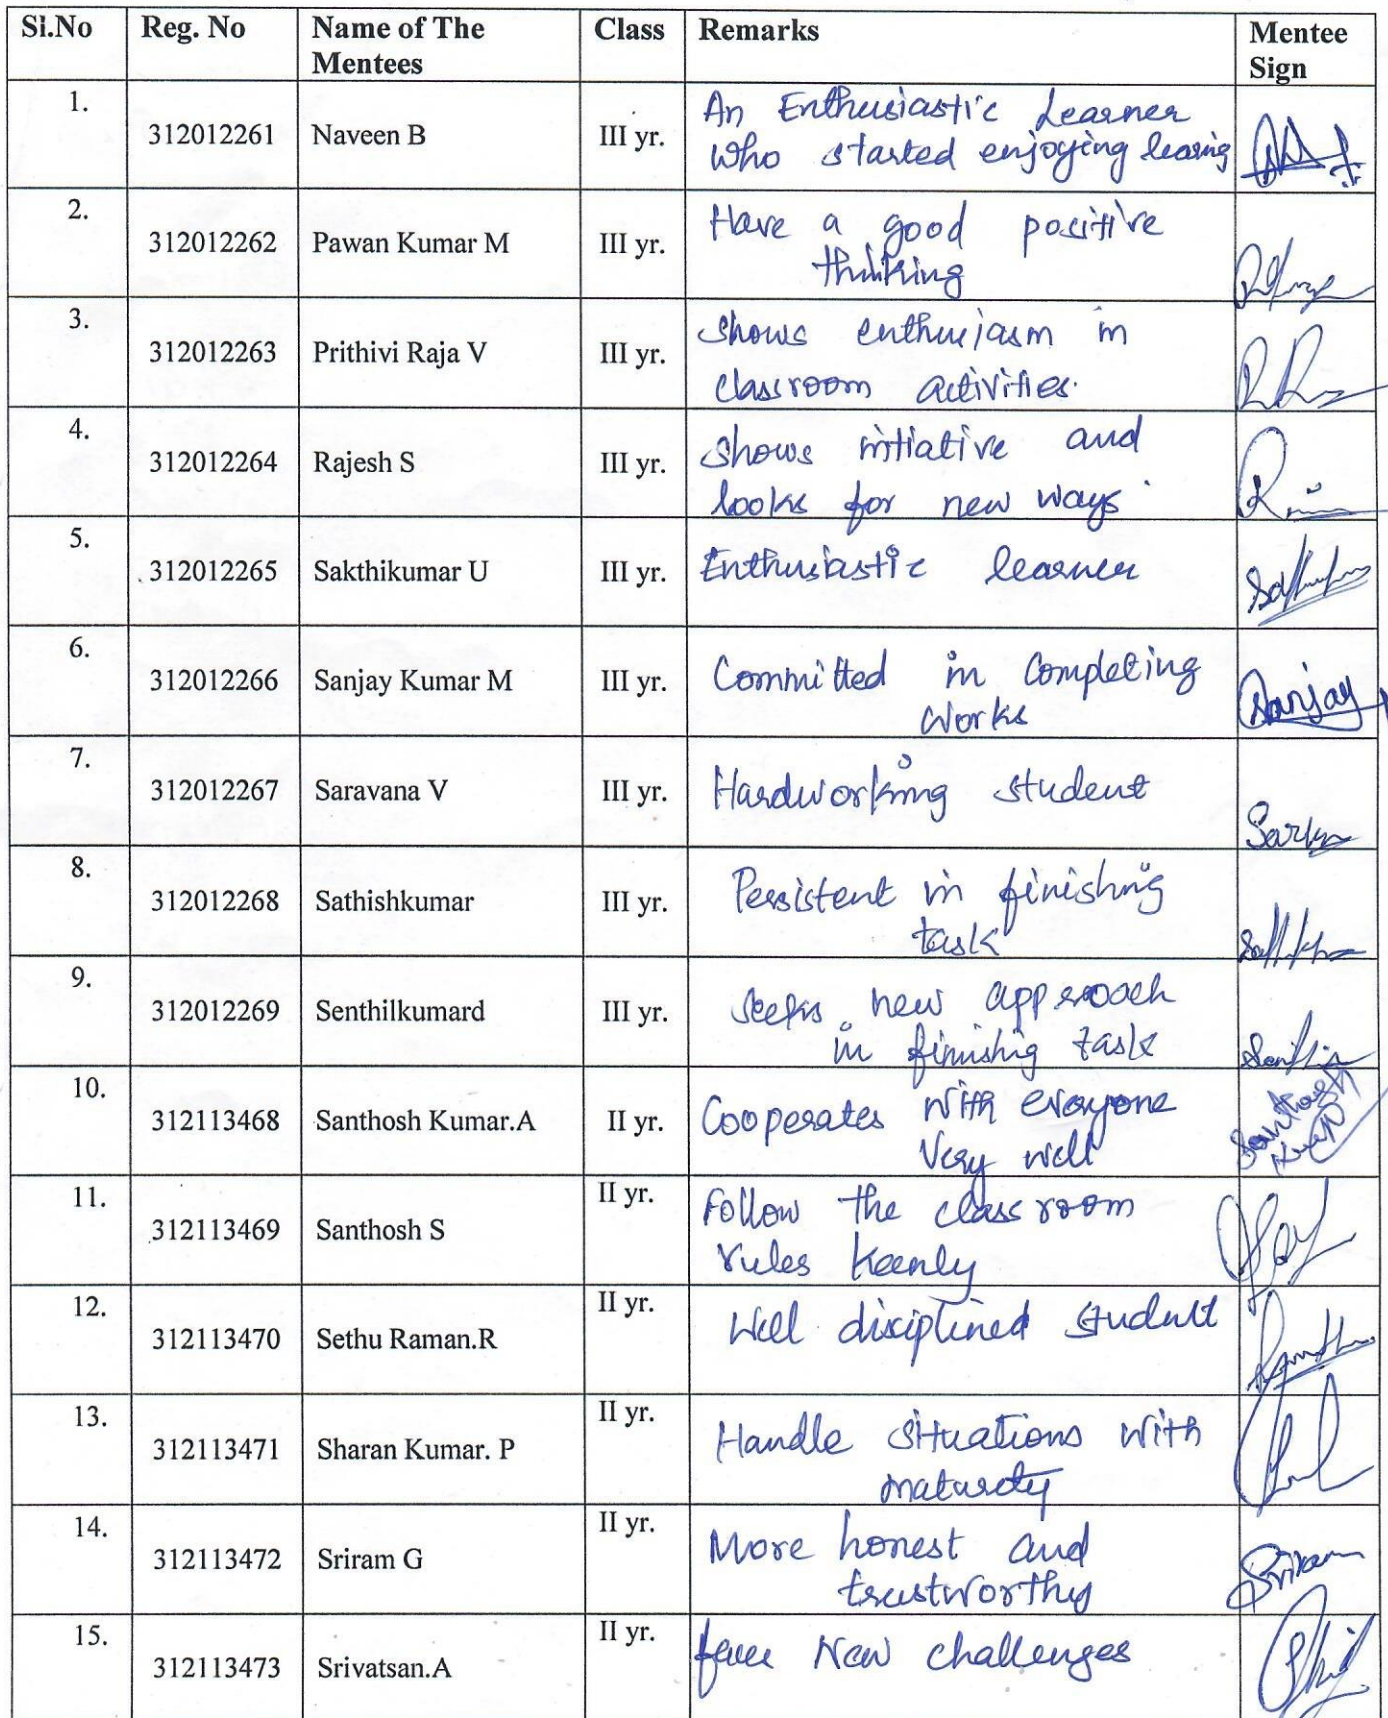 Sl.No Reg. No Name of The Mentees Class Remarks Mentee Sign
1. 312012261 Naveen B III yr. An Enthusiastic Learner
who started enjoying learing
2. 312012262 Pawan Kumar M III yr. Have a good positive
thinking
3. 312012263 Prithivi Raja V III yr. shows enthusiasm in
classroom activities.
4. 312012264 Rajesh S III yr. shows initiative and
looks for new ways
5. 312012265 Sakthikumar U III yr. Enthusiastic learner
6. 312012266 Sanjay Kumar M III yr. Committed in Completing
works Sanjay
7. 312012267 Saravana V III yr. Hardworking student
8. 312012268 Sathishkumar III yr. Persistent in finishing
task
9. 312012269 Senthilkumard III yr. Seeks new approach
in finishig task
10. 312113468 Santhosh Kumar.A II yr. Cooperates with everyone
Very well Santhosh
11. 312113469 Santhosh S II yr. Follow the class room
rules keenly
12. 312113470 Sethu Raman.R II yr. Well disciplined student
13. 312113471 Sharan Kumar. P II yr. Handle situations with
maturity
14. 312113472 Sriram G II yr. More honest and
trustworthy Sriram
15. 312113473 Srivatsan.A II yr. face New challenges